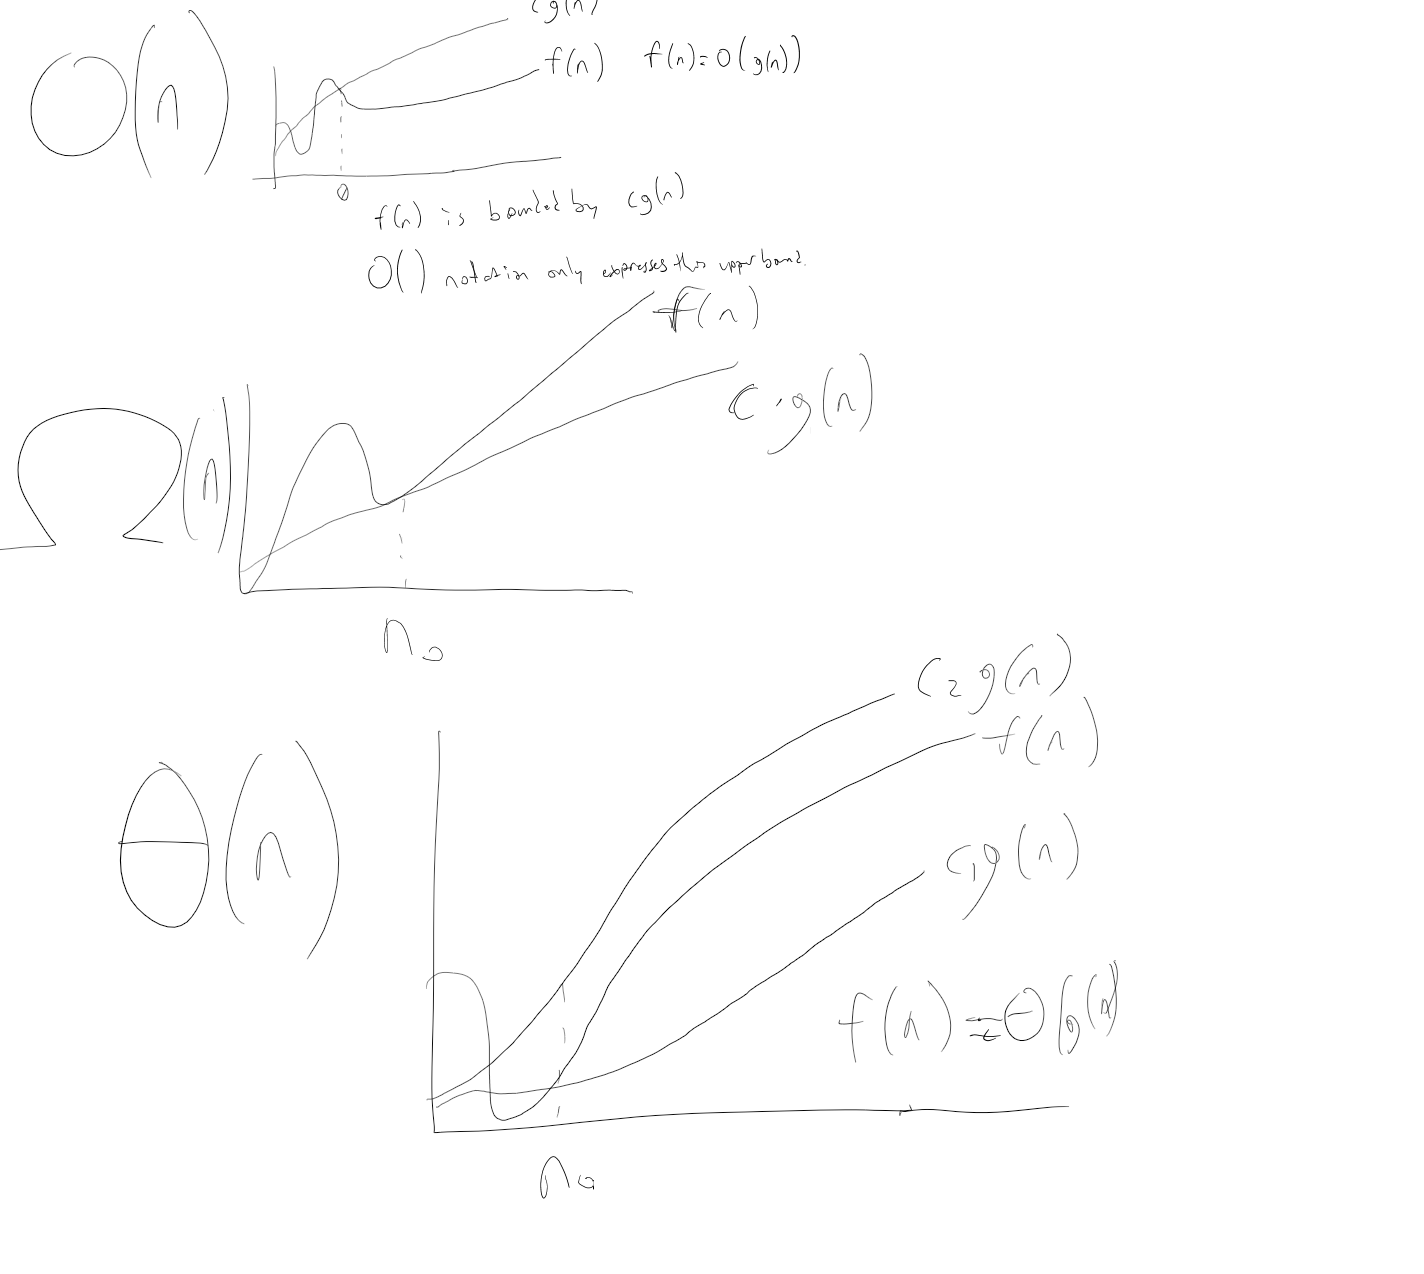 O(n)
cg(n)
f(n) f(n)=O(g(n))
0
f(n) is bounded by cg(n)
O() notation only expresses this upper bound.
f(n)
c·g(n)
Ω(n)
n₀
c₂g(n)
f(n)
Θ(n)
c₁g(n)
f(n)=Θ(g(n))
n₀